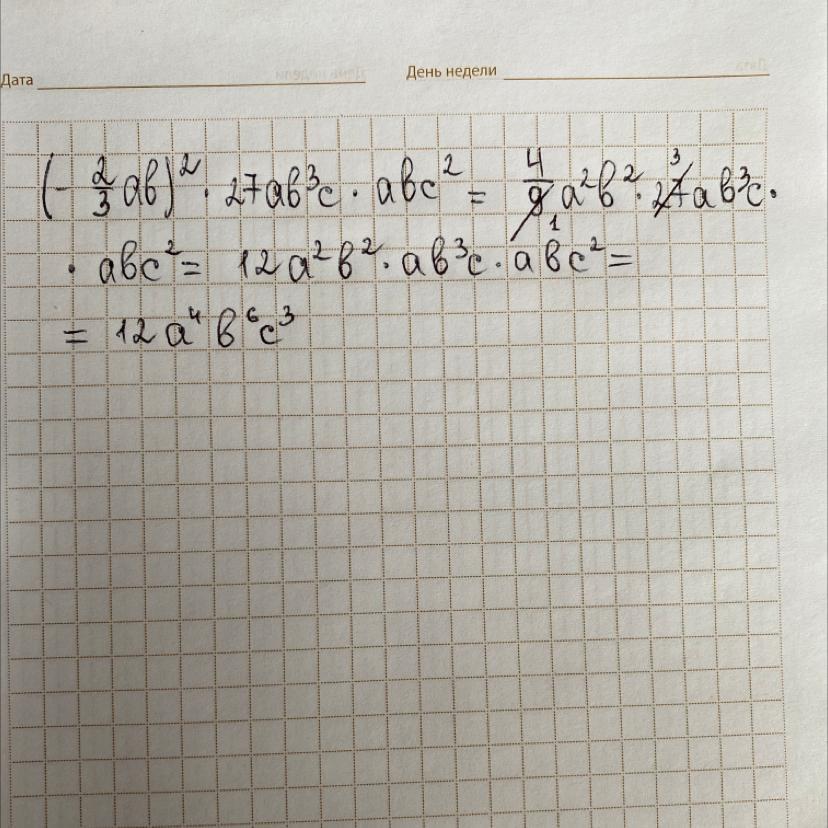 Дата День недели
(-2/3 ab)² · 27ab³c · abc² = 4/9 a²b² · 27 3 ab³c ·
· abc² = 12a²b² · ab³c · abc² =
= 12a⁴b⁶c³